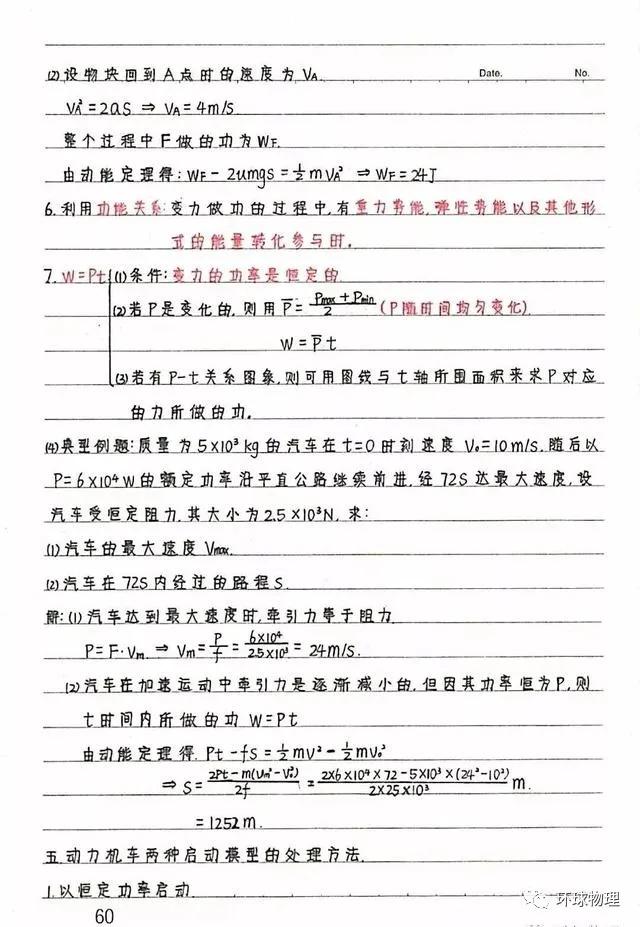 Date. No.
(2)设物块回到A点时的速度为VA.
VA²=2as ⇒ VA=4m/s
整个过程中F做的功为WF.
由动能定理得:WF-2umgs=½mVA² ⇒WF=24J
6.利用功能关系:变力做功的过程中,有重力势能,弹性势能以及其他形
式的能量转化参与时.
7.W=Pt (1)条件:变力的功率是恒定的
(2)若P是变化的,则用P̅=(Pmax+Pmin)/2 (P随时间均匀变化).
W=P̅t
(3)若有P-t关系图象,则可用图线与t轴所围面积来求P对应
的力所做的功.
(4)典型例题:质量为5×10³kg的汽车在t=0时刻速度V₀=10m/s.随后以
P=6×10⁴W的额定功率沿平直公路继续前进,经72S达最大速度,设
汽车受恒定阻力,其大小为2.5×10³N,求:
(1)汽车的最大速度Vmax.
(2)汽车在72S内经过的路程S.
解:(1)汽车达到最大速度时,牵引力等于阻力
P=F·Vm ⇒ Vm=P/f=6×10⁴/2.5×10³=24m/s.
(2)汽车在加速运动中牵引力是逐渐减小的,但因其功率恒为P,则
t时间内所做的功W=Pt
由动能定理得.Pt-fS=½mv²-½mv₀²
⇒S=(2Pt-m(Vm²-V₀²))/2f=(2×6×10⁴×72-5×10³×(24²-10²))/(2×2.5×10³)m.
=1252m.
五.动力机车两种启动模型的处理方法.
1.以恒定功率启动
60
环球物理